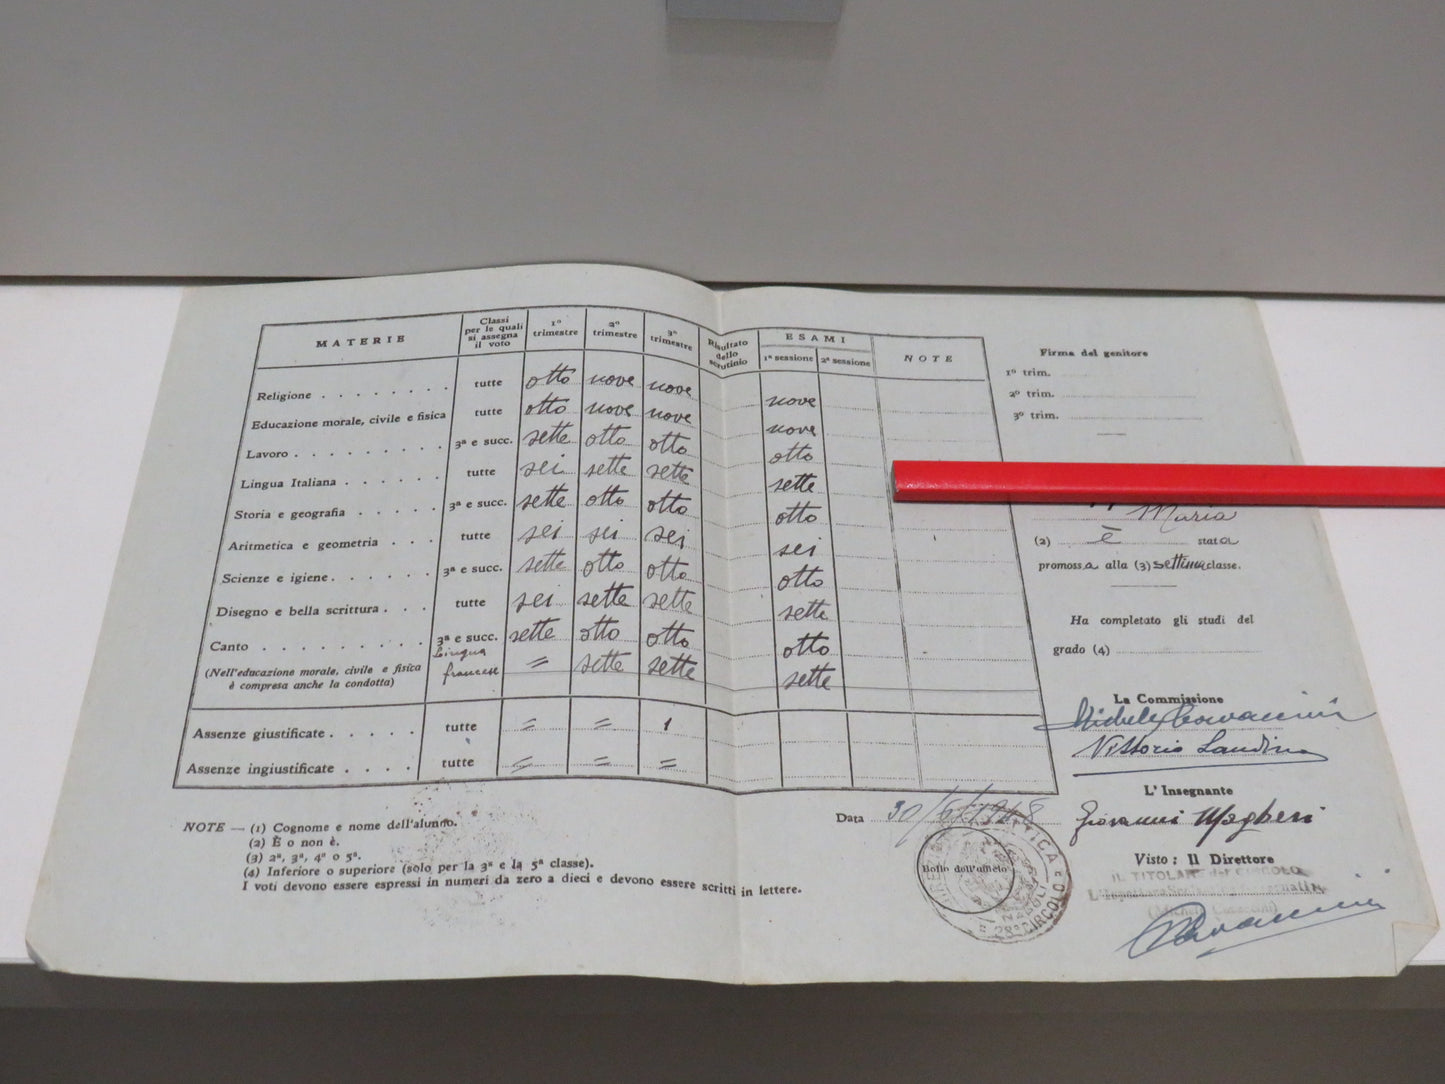 MATERIE Classi per le quali si assegna il voto 1º trimestre 2º trimestre 3º trimestre Risultato dello scrutinio ESAMI 1ª sessione 2ª sessione NOTE
Religione tutte otto nove nove nove
Educazione morale, civile e fisica tutte otto nove nove nove
Lavoro 3ª e succ. sette otto otto otto
Lingua Italiana tutte sei sette sette sette
Storia e geografia 3ª e succ. sette otto otto otto
Aritmetica e geometria tutte sei sei sei sei
Scienze e igiene 3ª e succ. sette otto otto otto
Disegno e bella scrittura tutte sei sette sette sette
Canto 3ª e succ. sette otto otto otto
(Nell'educazione morale, civile e fisica è compresa anche la condotta) Lingua francese = sette sette sette
Assenze giustificate tutte = = 1
Assenze ingiustificate tutte = = =
NOTE — (1) Cognome e nome dell'alunno.
(2) È o non è.
(3) 2ª, 3ª, 4ª o 5ª.
(4) Inferiore o superiore (solo per la 3ª e la 5ª classe).
I voti devono essere espressi in numeri da zero a dieci e devono essere scritti in lettere.
Data 30/6/1948
Bollo dell'ufficio
NAPOLI
28º CIRCOLO
Firma del genitore
1º trim.
2º trim.
3º trim.
Maria
(2) è stata
promossa alla (3) settima classe.
Ha completato gli studi del
grado (4)
La Commissione
Vittorio Landino
L'Insegnante
Giovanni Magheri
Visto: Il Direttore
IL TITOLARE del CIRCOLO